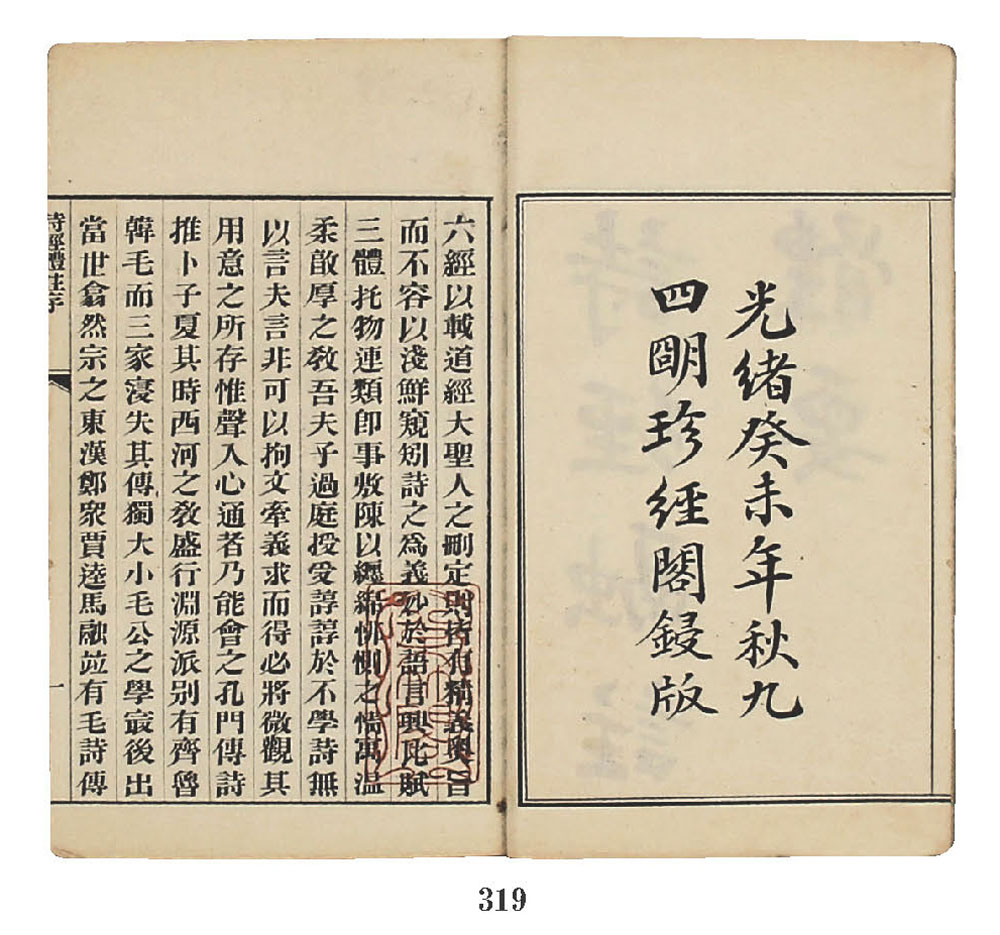 光緒癸未年秋九
四明珍經閣鋟版
六經以載道經大聖人之刪定則皆有精義奧旨
而不容以淺鮮窺矧詩之爲義妙於語言興比賦
三體托物連類卽事敷陳以纏綿悱惻之情寓温
柔敦厚之敎吾夫子過庭授受諄諄於不學詩無
以言夫言非可以拘文牽義求而得必將微觀其
用意之所存惟聲入心通者乃能會之孔門傳詩
推卜子夏其時西河之敎盛行淵源派别有齊魯
韓毛而三家寖失其傳獨大小毛公之學㝡後出
當世翕然宗之東漢鄭衆賈逵馬融竝有毛詩傳
詩經體註序
一
319